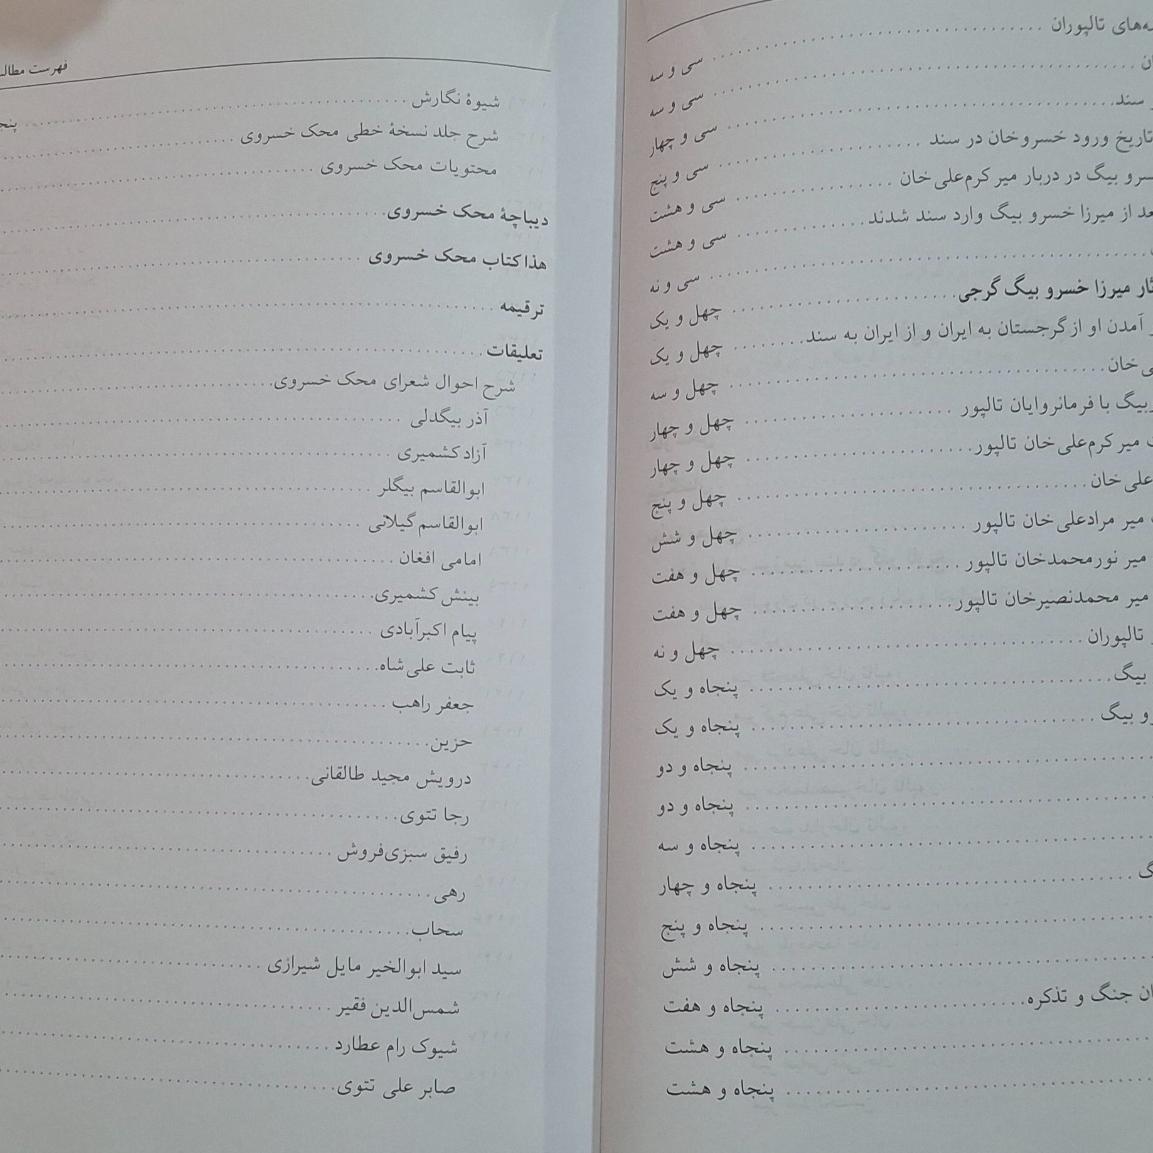 تالپوران ........ سی و سه
........ سی و سه
سند ........ سی و چهار
تاریخ ورود خسروخان در سند ........ سی و پنج
بیگ در دربار میر کرم‌علی‌خان ........ سی و هشت
از میرزا خسرو بیگ وارد سند شدند ........ سی و هشت
........ سی و نه
میرزا خسرو بیگ گرجی ........ چهل و یک
آمدن او از گرجستان به ایران و از ایران به سند ........ چهل و یک
خان ........ چهل و سه
با فرمانروایان تالپور ........ چهل و چهار
میر کرم‌علی‌خان تالپور ........ چهل و چهار
علی‌خان ........ چهل و پنج
میر مرادعلی‌خان تالپور ........ چهل و شش
میر نورمحمدخان تالپور ........ چهل و هفت
میر محمدنصیرخان تالپور ........ چهل و هفت
تالپوران ........ چهل و نه
بیگ ........ پنجاه و یک
بیگ ........ پنجاه و یک
........ پنجاه و دو
........ پنجاه و دو
........ پنجاه و سه
........ پنجاه و چهار
........ پنجاه و پنج
........ پنجاه و شش
جنگ و تذکره ........ پنجاه و هفت
........ پنجاه و هشت
........ پنجاه و هشت
فهرست
شیوۀ نگارش
شرح جلد نسخۀ خطی محک خسروی
محتویات محک خسروی
دیباچۀ محک خسروی
هذا کتاب محک خسروی
ترقیمه
تعلیقات
شرح احوال شعرای محک خسروی
آذر بیگدلی
آزاد کشمیری
ابوالقاسم بیگلر
ابوالقاسم گیلانی
امامی افغان
بینش کشمیری
پیام اکبرآبادی
ثابت علی‌شاه
جعفر راهب
حزین
درویش مجید طالقانی
رجا تتوی
رفیق سبزی‌فروش
رهی
سحاب
سید ابوالخیر مایل شیرازی
شمس‌الدین فقیر
شیوک رام عطارد
صابر علی تتوی